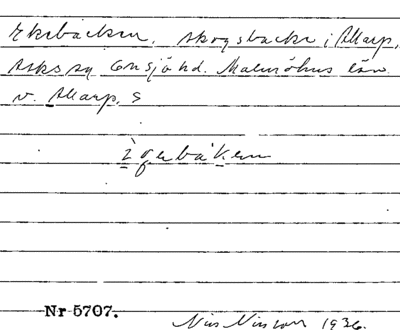 Ekebacken, skogsbacke i Allarp,
Asks sn Onsjö hd. Malmöhus län
v. Allarp, S
ègebàken
Nr 5707.
Nils Nilsson 1936.